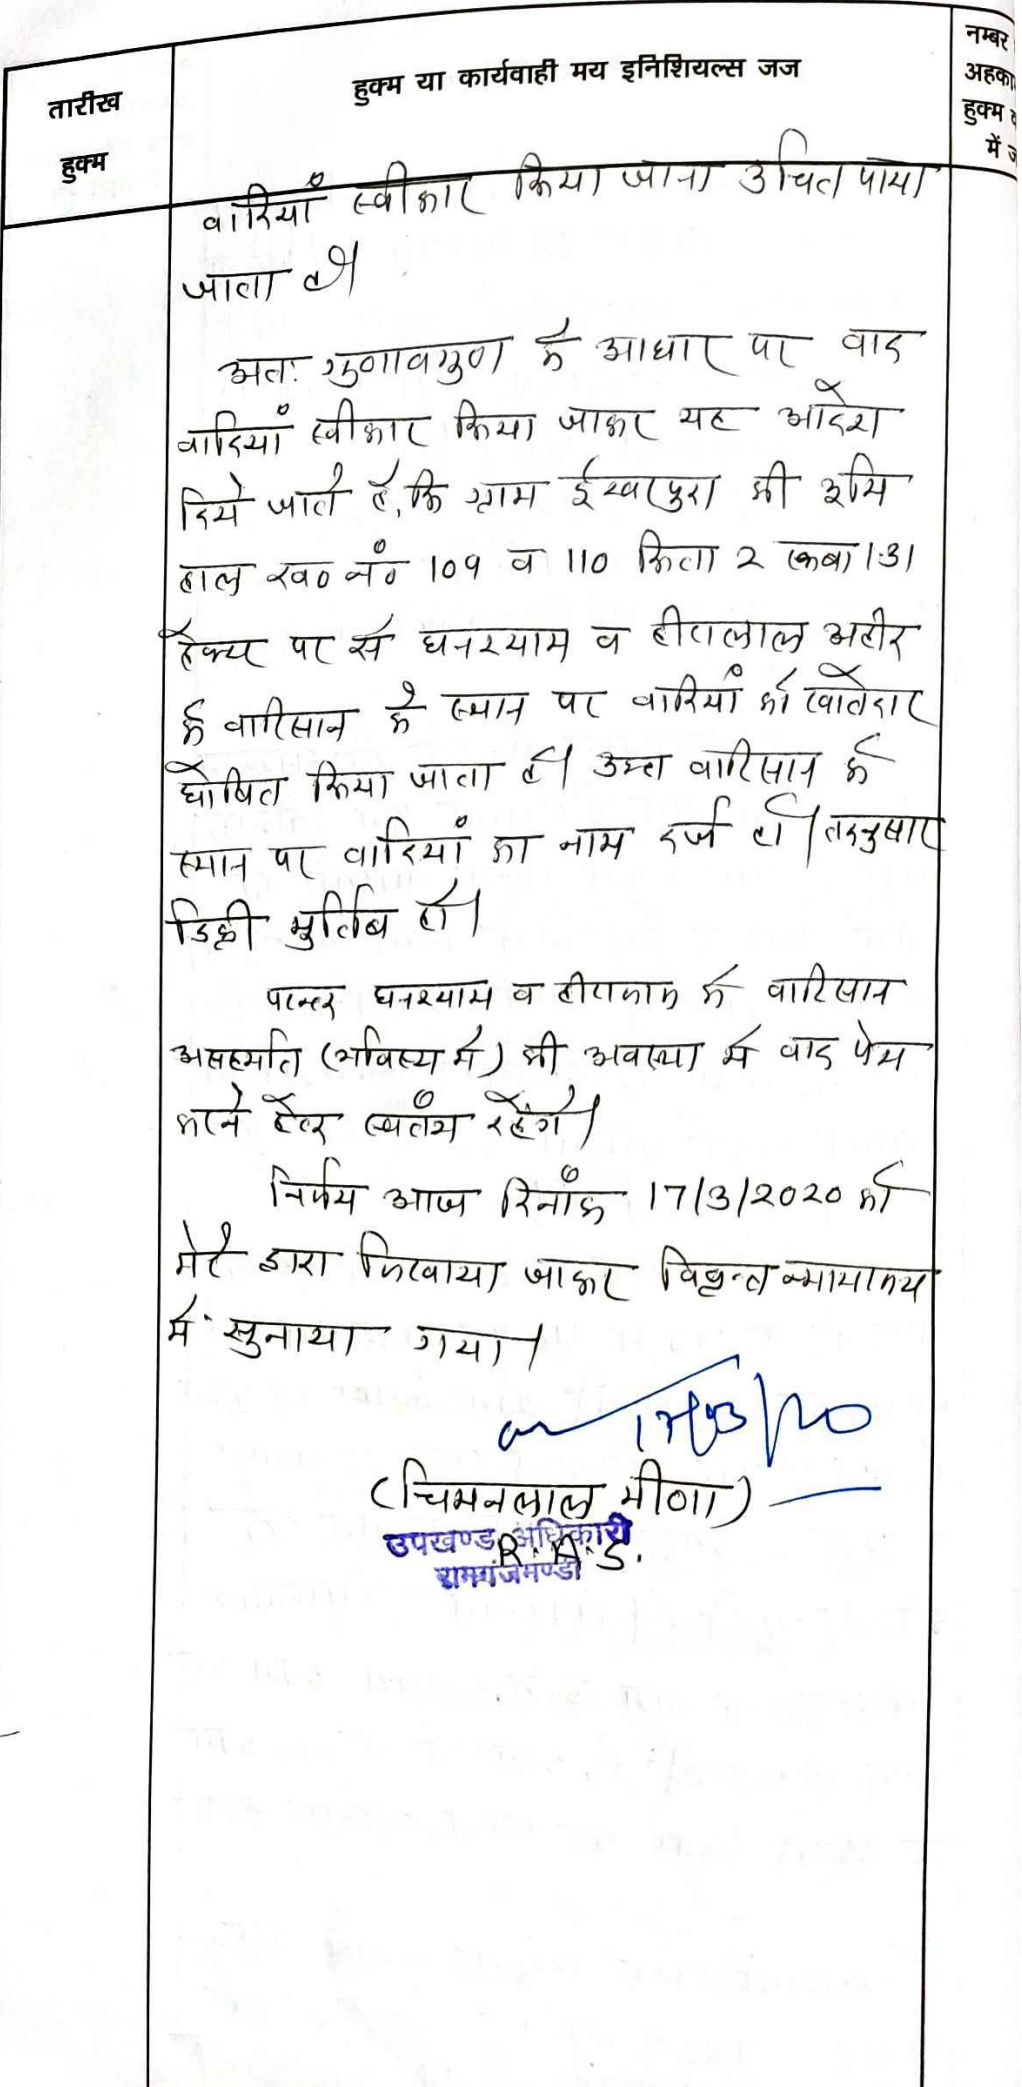 तारीख
हुक्म
हुक्म या कार्यवाही मय इनिशियल्स जज
नम्बर
अहका
हुक्म
में ज
वादियाँ स्वीकार किया जाना उचित पाया
जाता है।
अतः गुणावगुण के आधार पर वाद
वादियाँ स्वीकार किया जाकर यह आदेश
दिये जाते है, कि ग्राम ईश्वरपुरा की भूमि
हाल ख० नं० 109 व 110 किता 2 रकबा 1.31
हैक्टर पर से घनश्याम व हीरालाल अहीर
के वारिसान के स्थान पर वादियाँ को खातेदार
घोषित किया जाता है। उक्त वारिसान के
स्थान पर वादियाँ का नाम दर्ज हो। तदनुसार
डिक्री मुर्तिब हो।
परन्तु घनश्याम व हीरालाल के वारिसान
असहमति (भविष्य में) की अवस्था में वाद पेश
करने हेतु स्वतंत्र रहेंगे।
निर्णय आज दिनाँक 17/3/2020 को
मेरे द्वारा लिखवाया जाकर विवृत न्यायालय
में सुनाया गया।
17/03/20
(चिमनलाल मीणा)
उपखण्ड अधिकारी
R.A.S.
रामगंजमण्डी